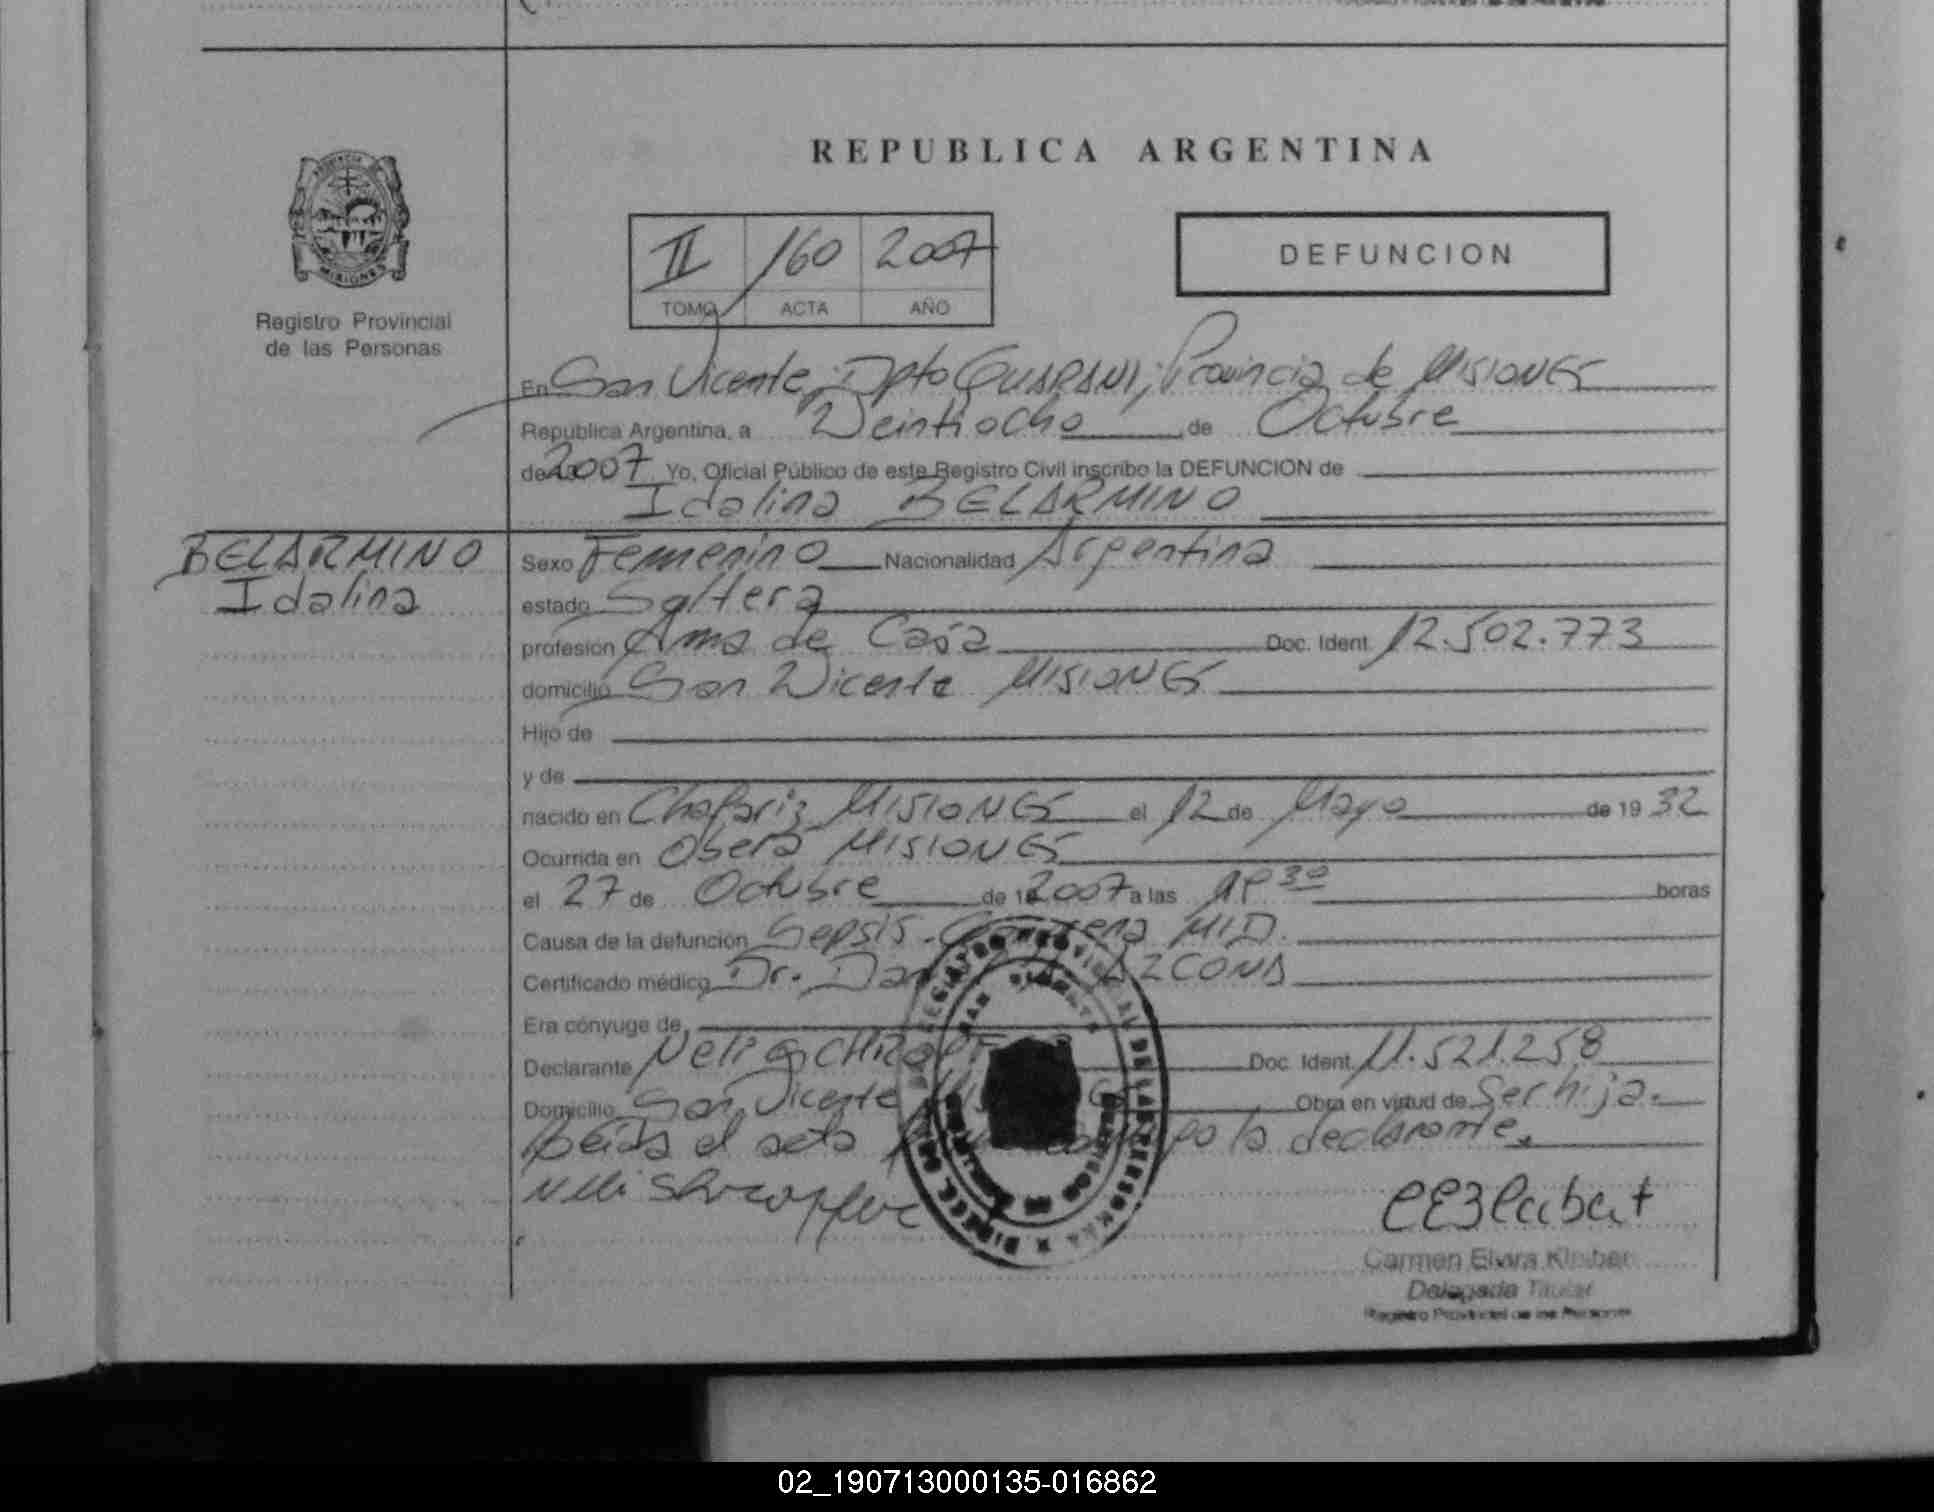 REPUBLICA ARGENTINA
PROVINCIA
MISIONES
Registro Provincial
de las Personas
II 160 2007
TOMO ACTA AÑO
DEFUNCION
En San Vicente, Dpto GUARANI, Provincia de MISIONES
Republica Argentina, a Veintiocho de Octubre
de 2007 Yo, Oficial Público de este Registro Civil inscribo la DEFUNCION de
Idalina BELARMINO
BELARMINO
Idalina
Sexo Femenino Nacionalidad Argentina
estado Soltera
profesión Ama de Casa Doc. Ident. 12.502.773
domicilio San Vicente MISIONES
Hijo de
y de
nacido en Chafariz MISIONES el 12 de Mayo de 19 32
Ocurrida en Oberá MISIONES
el 27 de Octubre de 2007 a las horas
Causa de la defunción Sepsis. MID.
Certificado médico Dr. AZCONA
Era cónyuge de
Declarante Doc. Ident. 11.521.258
Domicilio San Vicente Obra en virtud de Ser hija.
el acta la declarante.
Carmen Elvira
Delegada Titular
Registro Provincial de las Personas
02_190713000135-016862